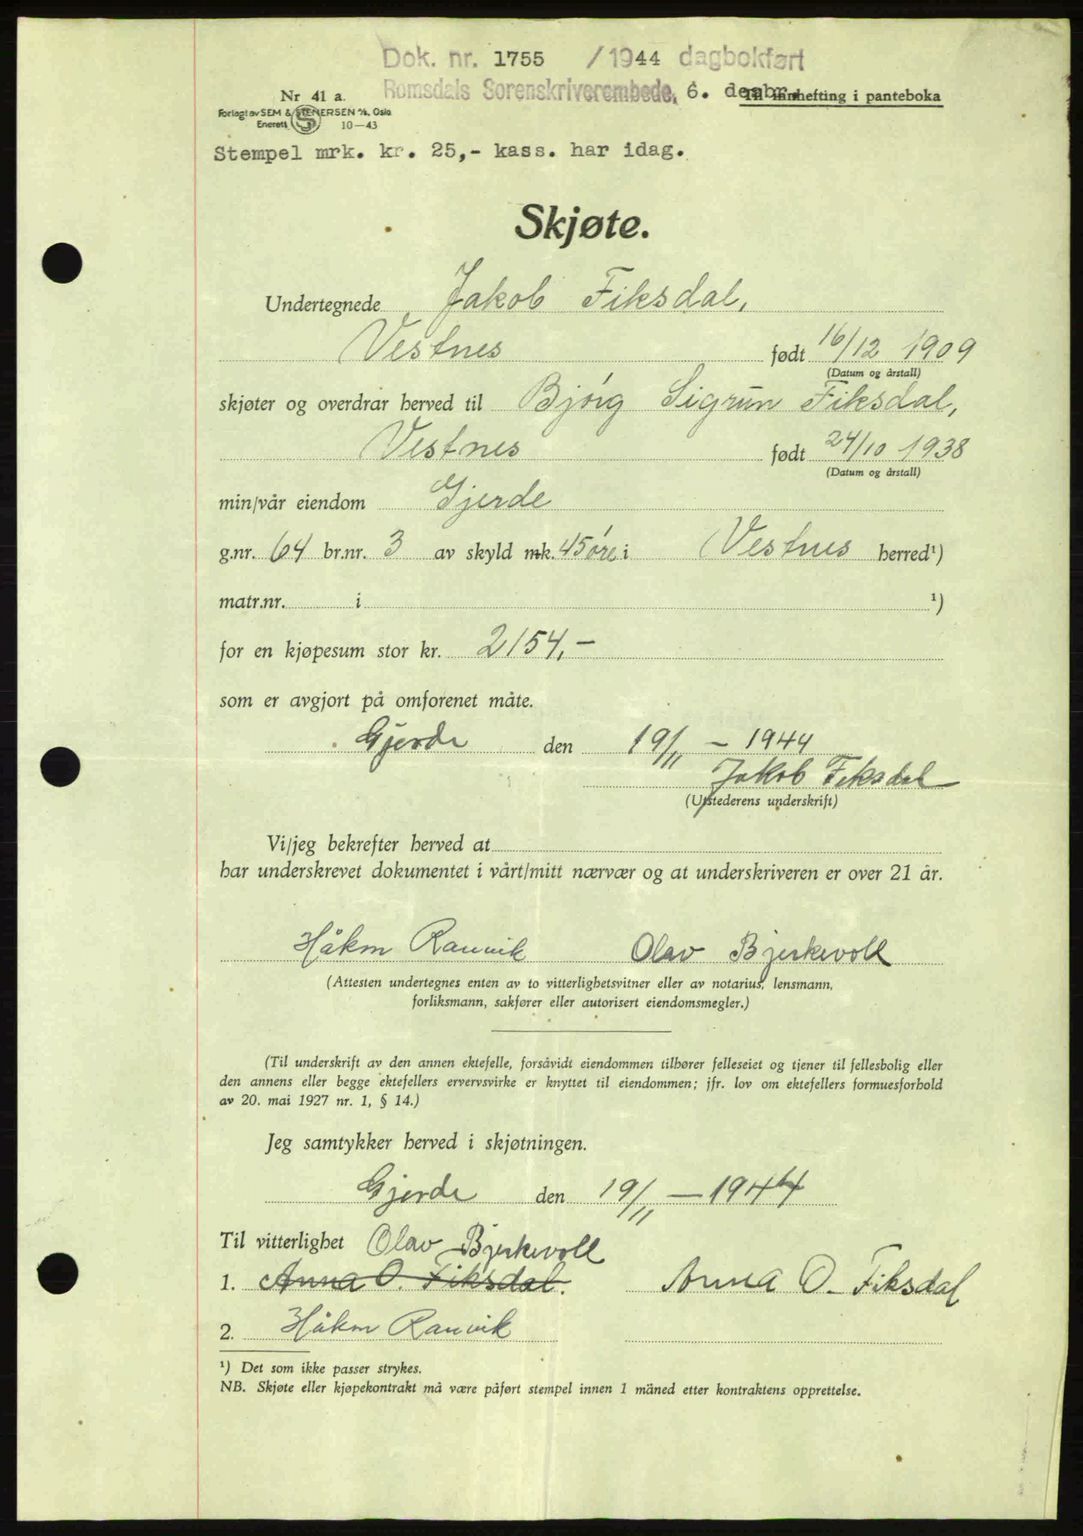 Dok. nr. 1755 /1944 dagbokført
Romsdals Sorenskriverembede, 6. desbr.
Nr 41 a. Til innhefting i panteboka
Forlagt av SEM & STENERSEN A/S, Oslo
Enerett S 10—43
Stempel mrk. kr. 25,- kass. har idag.
Skjøte.
Undertegnede Jakob Fiksdal,
Vestnes født 16/12 1909
(Datum og årstall)
skjøter og overdrar herved til Bjórg Sigrun Fiksdal,
Vestnes født 24/10 1938
(Datum og årstall)
min/vår eiendom Gjerde
g.nr. 64 br.nr. 3 av skyld mk. 45 øre i Vestnes herred¹)
matr.nr. i ¹)
for en kjøpesum stor kr. 2154,-
som er avgjort på omforenet måte.
Gjerde den 19/11 – 1944
Jakob Fiksdal
(Utstederens underskrift)
Vi/jeg bekrefter herved at
har underskrevet dokumentet i vårt/mitt nærvær og at underskriveren er over 21 år.
Håkon Ranvik Olav Bjerkevoll
(Attesten undertegnes enten av to vitterlighetsvitner eller av notarius, lensmann,
forliksmann, sakfører eller autorisert eiendomsmegler.)
(Til underskrift av den annen ektefelle, forsåvidt eiendommen tilhører felleseiet og tjener til fellesbolig eller
den annens eller begge ektefellers ervervsvirke er knyttet til eiendommen; jfr. lov om ektefellers formuesforhold
av 20. mai 1927 nr. 1, § 14.)
Jeg samtykker herved i skjøtningen.
Gjerde den 19/11 — 1944
Til vitterlighet Olav Bjerkevoll
1. Anna O. Fiksdal. Anna O. Fiksdal
2. Håkon Ranvik
¹) Det som ikke passer strykes.
NB. Skjøte eller kjøpekontrakt må være påført stempel innen 1 måned etter kontraktens opprettelse.